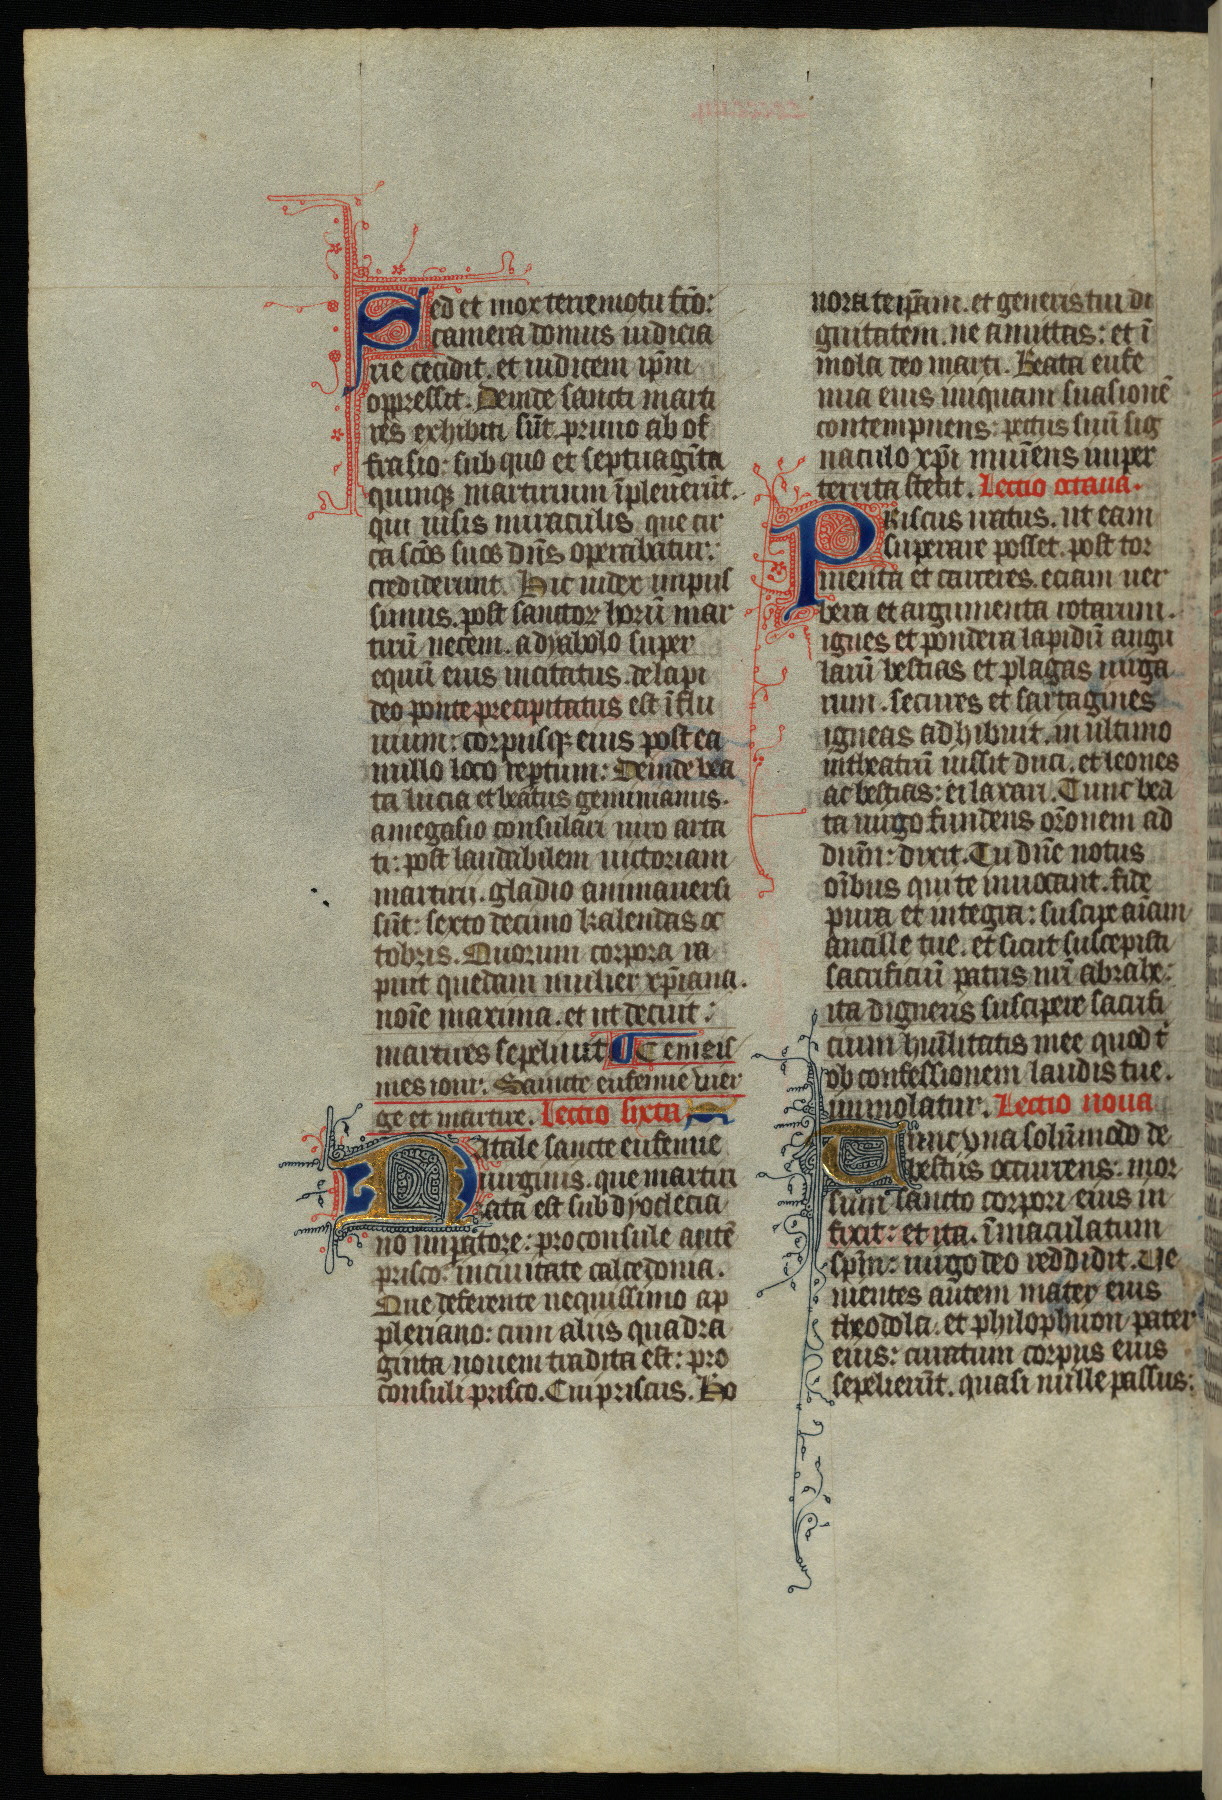 Sed et mox terremotu fc̄o:
camera domus iudicia
rie cecidit. et iudicem ip̄m
oppressit. Deinde sancti marti
res exhibiti sūt. primo ab of
frasio: sub quo et septuagīta
quinqꝫ martirium īpleuerūt.
qui uisis miraculis que cir
ca scōs suos dn̄s operabatur:
crediderunt. Hic iudex impiis
simus. post sanctoꝝ horū mar
tirū necem. a dyabolo super
equū eius incitatus. de lapi
deo ponte precipitatus est ī flu
uium: corpusqꝫ eius postea
nullo loco reptum: Deinde bea
ta lucia et beatus geminianus.
a megasio consulari uiro arta
ti: post laudabilem uictoriam
martirii. gladio animauersi
sūt: sexto decimo kalendas oc
tobris. Quorum corpora ra
puit quedam mulier xp̄iana.
noīe maxima. et ut decuit:
martires sepeliuit Ce meis
mes iour. Saincte eufemie vier
ge et martire. Lectio sixta
Natale sancte eufemie
uirginis. que martiri
zata est sub dyoclecia
no imp̄atore: proconsule autē
prisco. in ciuitate calcedonia.
Que deferente nequissimo ap
pleriano: cum aliis quadra
ginta nouem tradita est: pro
consuli prisco. Cui priscus. Ho
nora teip̄am. et generis tui di
gnitatem. ne amittas: et ī
mola deo marti. Beata eufe
mia eius iniquam suasionē
contempnens: pectus suū sig
naculo xp̄i muniēns imper
territa stetit. Lectio octaua.
Priscus iratus. ut eam
superare posset. post tor
menta et carceres. eciam uer
bera et argumenta rotarum.
ignes et pondera lapidū angu
larū bestias et plagas uirga
rum. secures et sartagines
igneas adhibuit. in ultimo
in theatrū iussit duci. et leones
ac bestias: ei laxari. Tunc bea
ta uirgo fundens or̄onem ad
dn̄m: dixit. Tu dn̄e notus
oībus qui te inuocant. fide
pura et integra: suscipe aīam
ancille tue. et sicut suscepisti
sacrificiū patris nr̄i abrahe:
ita digneris suscipere sacrifi
cium humilitatis mee quod t̄
ob confessionem laudis tue.
immolatur. Lectio noua
Tunc vna solūmodo de
bestiis occurrens: mor
sum sancto corpori eius in
fixit: et ita. īmaculatum
sp̄m: uirgo deo reddidit. Ue
nientes autem mater eius
theodola. et philophron pater
eius: curatum corpus eius
sepelierūt. quasi mille passus: